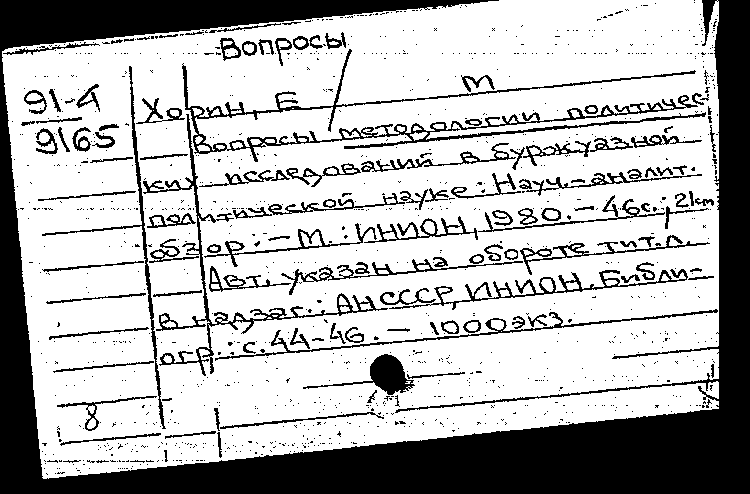 Вопросы
91-4
9165
Хорин, Е / м
Вопросы методологии политичес-
ких исследований в буржуазной
политической науке: Науч.-аналит.
обзор: - М.: ИНИОН, 1980. - 46с.; 21см
Авт. указан на обороте тит. л.
В надзаг.: АН СССР, ИНИОН. Библи-
огр.: с. 44-46. - 1000 экз.
8